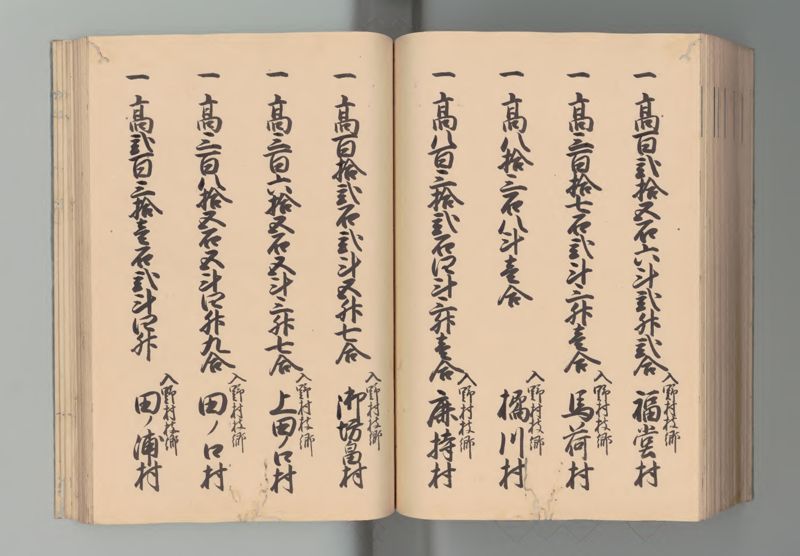 一 高百弐拾五石六斗弐升弐合
入野村枝郷
福堂村
一 高三百拾七石弐斗三升壱合
入野村枝郷
馬荷村
一 高八拾三石八斗壱合
入野村枝郷
橘川村
一 高八百三拾弐石四斗三升壱合
入野村枝郷
麻持村
一 高百拾弐石弐斗五升七合
入野村枝郷
御坊畠村
一 高三百六拾五石五斗三升七合
入野村枝郷
上田ノ口村
一 高三百八拾五石五斗四升九合
入野村枝郷
田ノ口村
一 高弐百三拾壱石弐斗四升
入野村枝郷
田ノ浦村